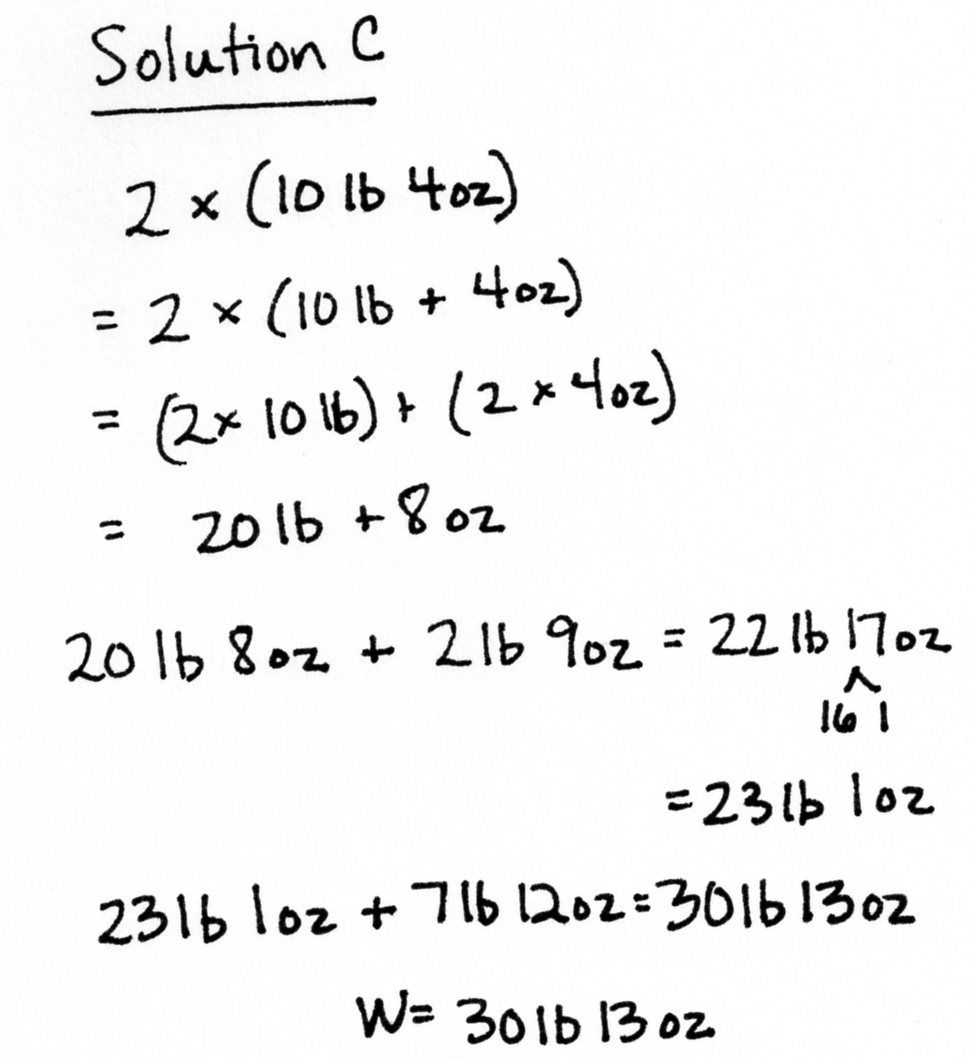 Solution C
2 × (10 lb 4oz)
= 2 × (10 lb + 4oz)
= (2 × 10 lb) + (2 × 4oz)
= 20 lb + 8 oz
20 lb 8oz + 2 lb 9oz = 22 lb 17oz
16 1
= 23 lb 1oz
23 lb 1oz + 7 lb 12oz = 30 lb 13 oz
W = 30 lb 13 oz